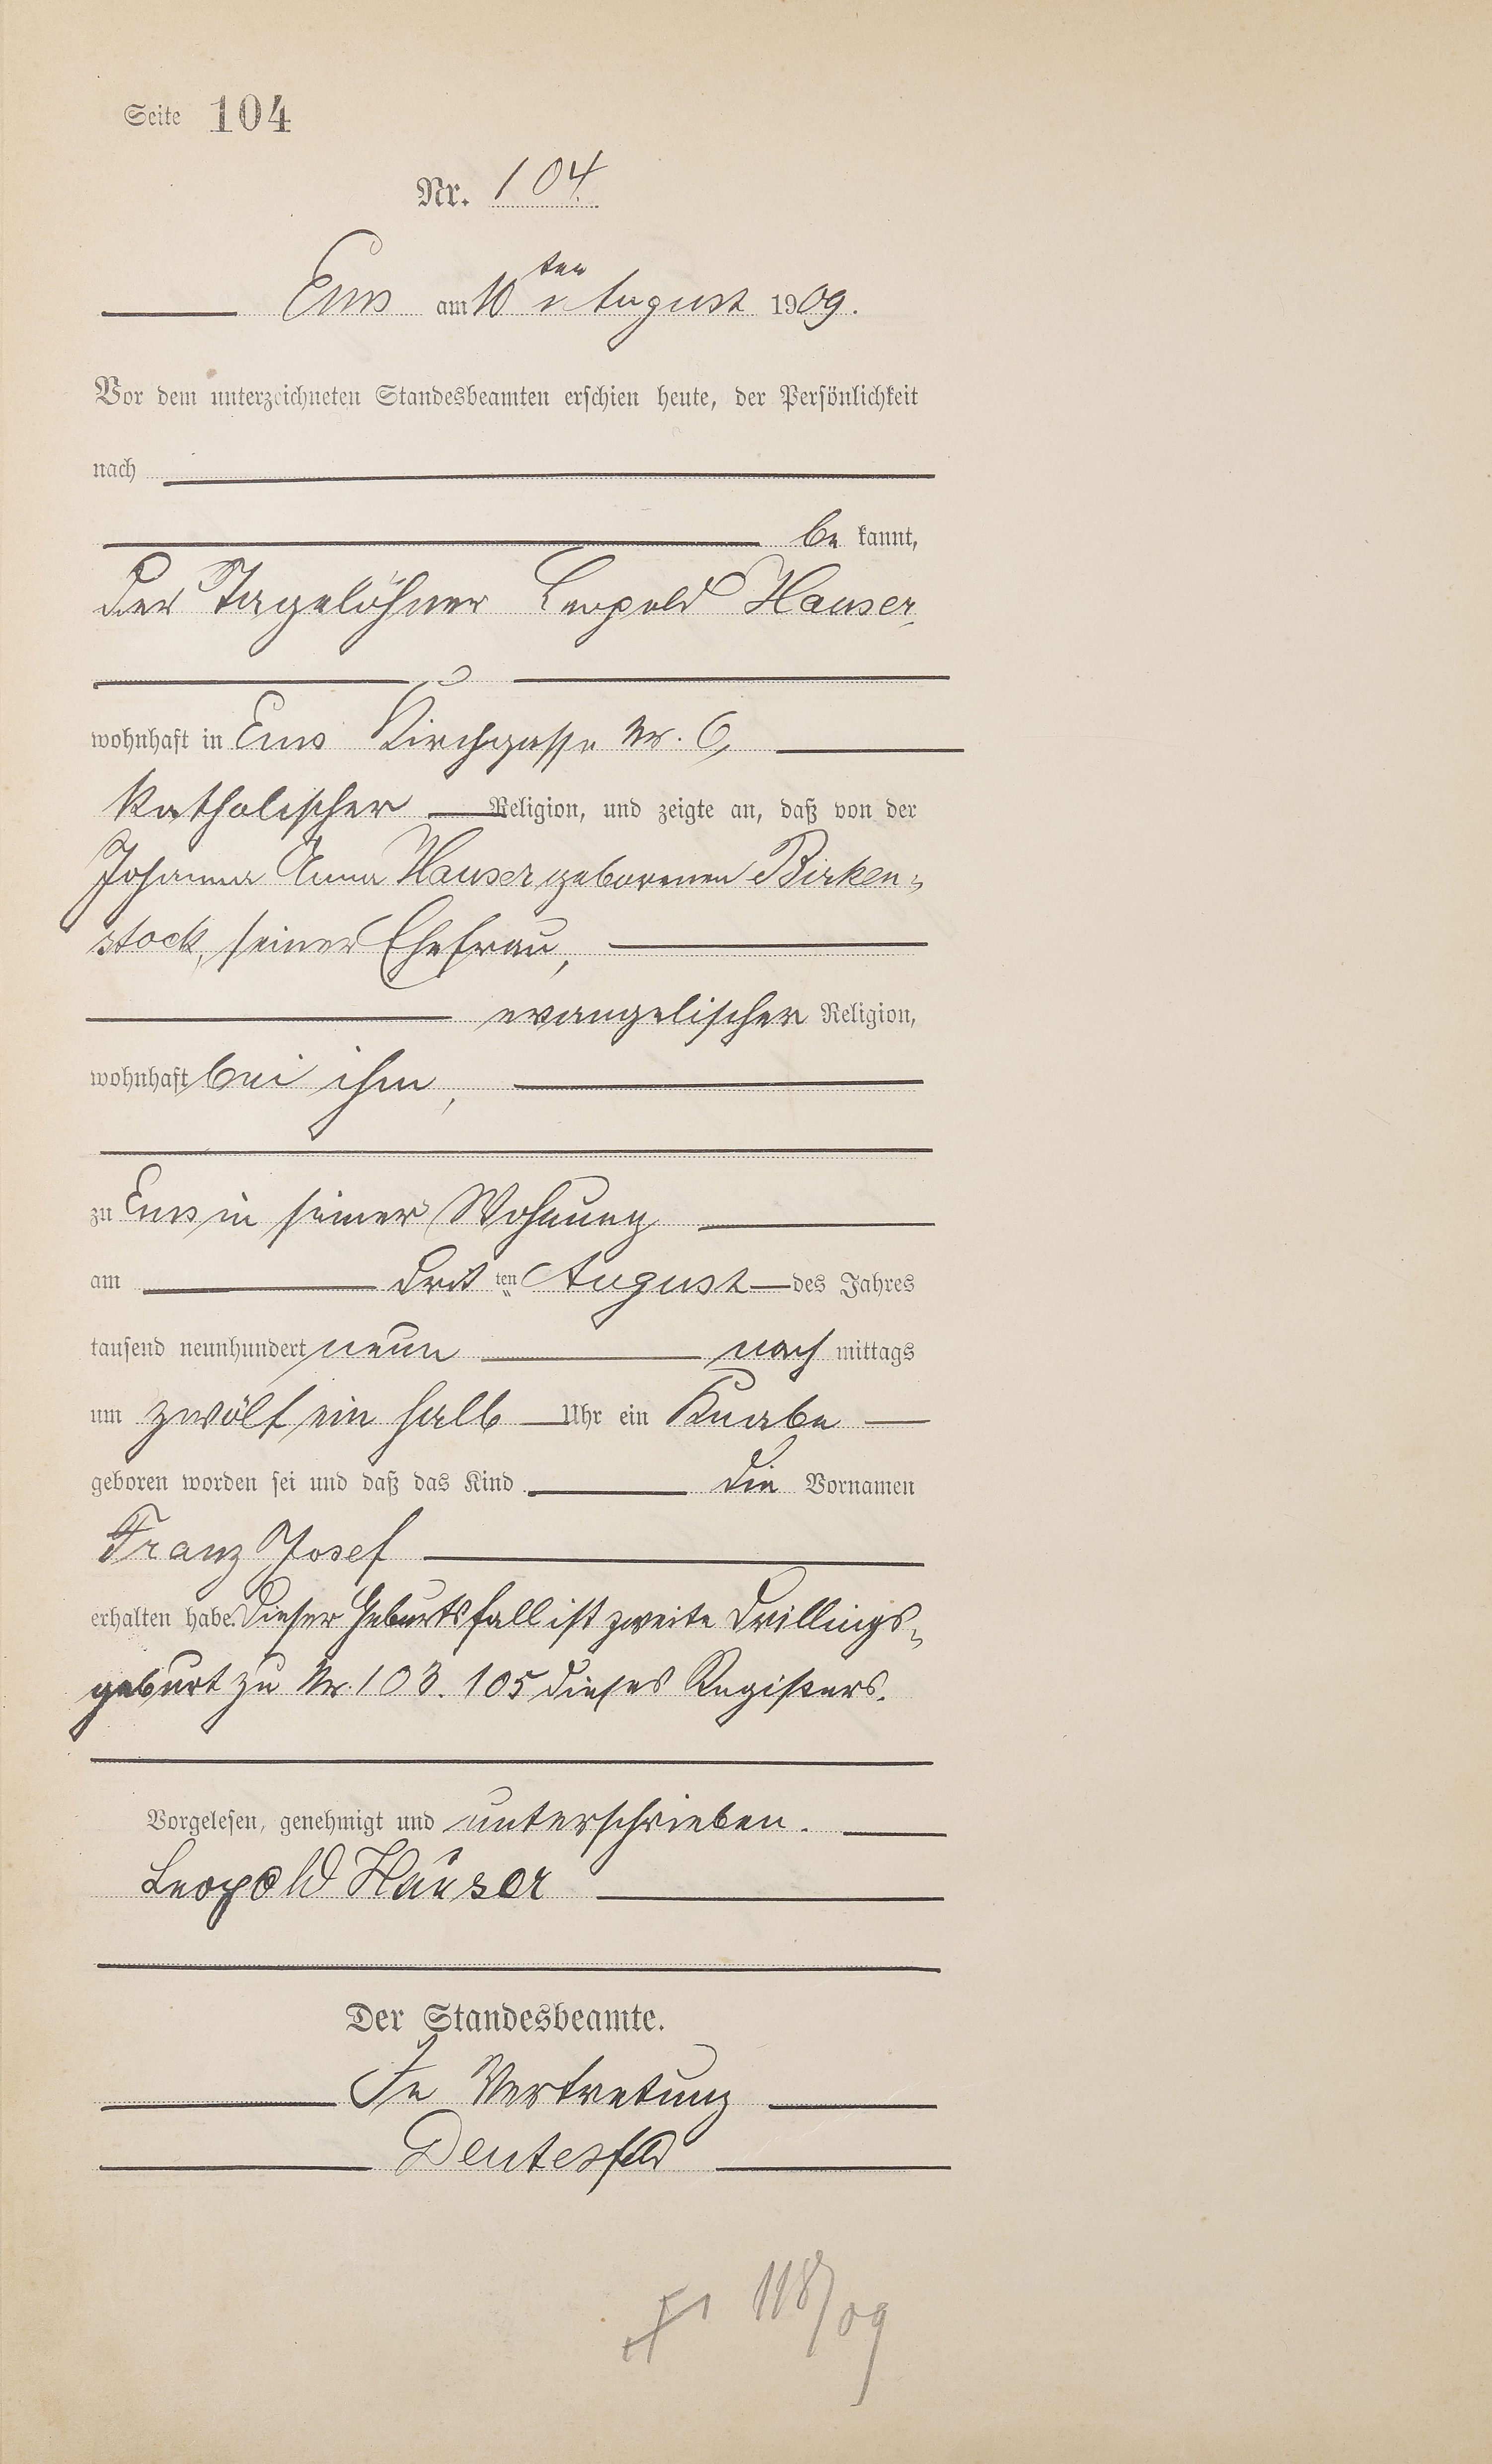 Seite 104
Nr. 104.
Ems am 10ten August 1909.
Vor dem unterzeichneten Standesbeamten erschien heute, der Persönlichkeit
nach
be kannt,
der Tagelöhner Leopold Hauser,
wohnhaft in Ems Kirchgasse Nr. 6,
katholischer Religion, und zeigte an, daß von der
Johanna Anna Hauser geborenen Birken-
stock, seiner Ehefrau,
evangelischer Religion,
wohnhaft bei ihm,
zu Ems in seiner Wohnung
am drit ten August des Jahres
tausend neunhundert neun nach mittags
um zwölf ein halb Uhr ein Knabe
geboren worden sei und daß das Kind die Vornamen
Franz Josef
erhalten habe. Dieser Geburtsfall ist zweite Drillings-
geburt zu Nr. 103. 105 dieses Registers.
Vorgelesen, genehmigt und unterschrieben.
Leopold Hauser
Der Standesbeamte.
In Vertretung
118/09